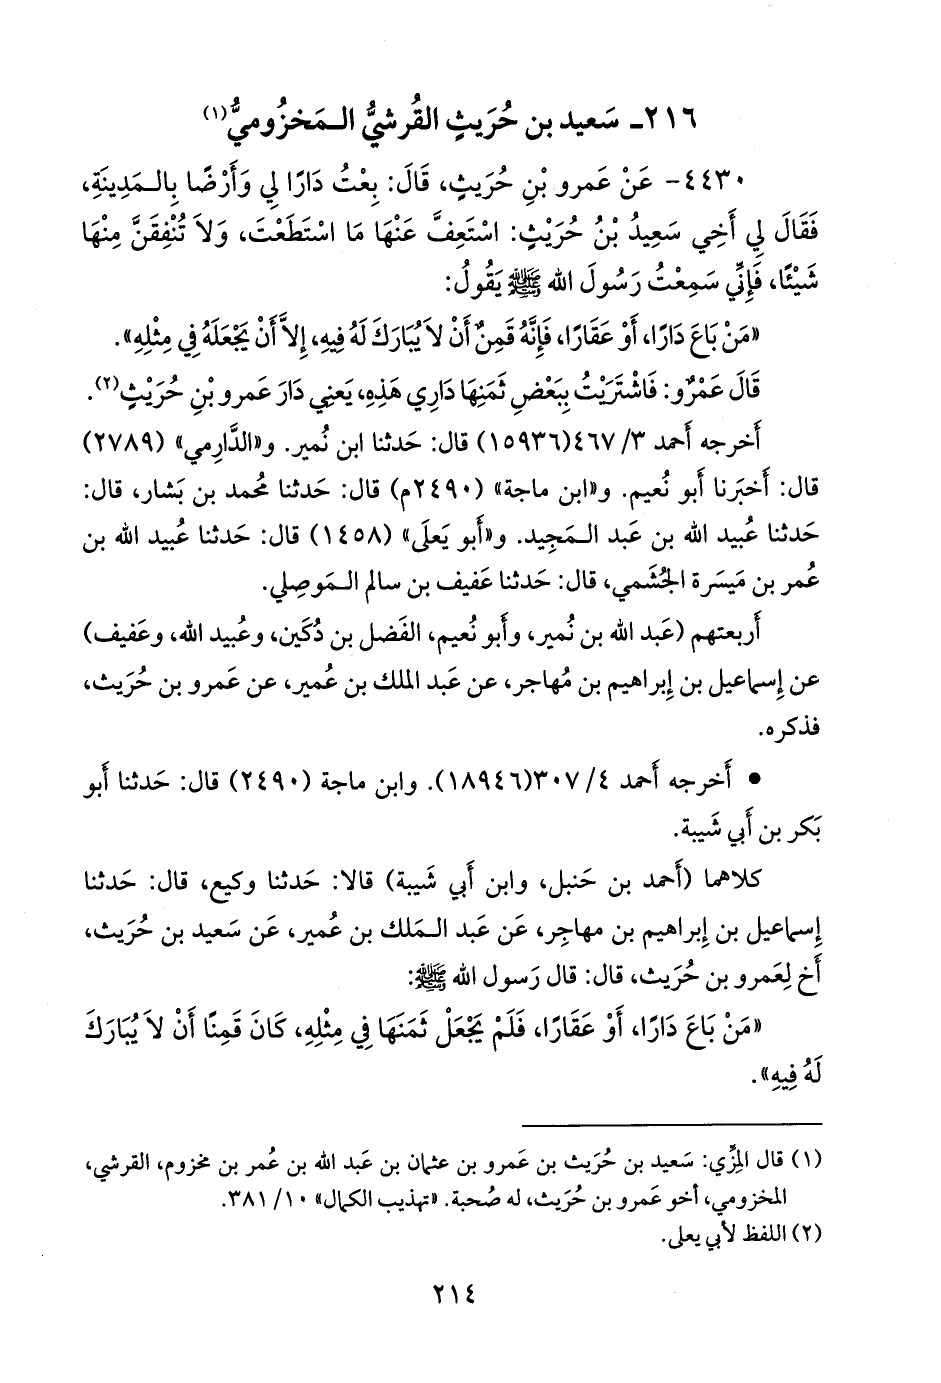 ٢١٦ـ سَعيد بن حُرَيثٍ القُرشيُّ الـمَخزُوميُّ(١)
٤٤٣٠- عَنْ عَمرو بْنِ حُرَيثٍ، قَالَ: بِعْتُ دَارًا لِي وَأَرْضًا بِالـمَدِينَةِ،
فَقَالَ لِي أَخِي سَعِيدُ بْنُ حُرَيْثٍ: اسْتَعِفَّ عَنْهَا مَا اسْتَطَعْتَ، وَلاَ تُنْفِقَنَّ مِنْهَا
شَيْئًا، فَإِنِّي سَمِعْتُ رَسُولَ الله ﷺ يَقُولُ:
«مَنْ بَاعَ دَارًا، أَوْ عَقَارًا، فَإِنَّهُ قَمِنٌ أَنْ لاَ يُبَارَكَ لَهُ فِيهِ، إِلاَّ أَنْ يَجْعَلَهُ فِي مِثْلِهِ».
قَالَ عَمْرٌو: فَاشْتَرَيْتُ بِبَعْضِ ثَمَنِهَا دَارِي هَذِهِ، يَعنِي دَارَ عَمرو بْنِ حُرَيْثٍ(٢).
أَخرجه أَحمد ٣/ ٤٦٧(١٥٩٣٦) قال: حَدثنا ابن نُمير. و«الدَّارِمي» (٢٧٨٩)
قال: أَخبَرنا أَبو نُعيم. و«ابن ماجة» (٢٤٩٠م) قال: حَدثنا مُحمد بن بَشار، قال:
حَدثنا عُبيد الله بن عَبد الـمَجِيد. و«أَبو يَعلَى» (١٤٥٨) قال: حَدثنا عُبيد الله بن
عُمر بن مَيسَرة الجُشَمي، قال: حَدثنا عَفيف بن سالم الـمَوصِلي.
أَربعتهم (عَبد الله بن نُمير، وأَبو نُعيم، الفَضل بن دُكَين، وعُبيد الله، وعَفيف)
عن إِسماعيل بن إِبراهيم بن مُهاجر، عن عَبد الملك بن عُمير، عن عَمرو بن حُرَيث،
فذكره.
• أَخرجه أَحمد ٤/ ٣٠٧(١٨٩٤٦). وابن ماجة (٢٤٩٠) قال: حَدثنا أَبو
بَكر بن أَبي شَيبة.
كلاهما (أَحمد بن حَنبل، وابن أَبي شَيبة) قالا: حَدثنا وكيع، قال: حَدثنا
إِسماعيل بن إِبراهيم بن مهاجِر، عَن عَبد الـمَلك بن عُمير، عَن سَعيد بن حُرَيث،
أَخ لِعَمرو بن حُرَيث، قال: قال رَسول الله ﷺ:
«مَنْ بَاعَ دَارًا، أَوْ عَقَارًا، فَلَمْ يَجْعَلْ ثَمَنَهَا فِي مِثْلِهِ، كَانَ قَمِنًا أَنْ لاَ يُبَارَكَ
لَهُ فِيهِ».
(١) قال المِزِّي: سَعيد بن حُرَيث بن عَمرو بن عثمان بن عَبد الله بن عُمر بن مخزوم، القرشي،
المخزومي، أخو عَمرو بن حُرَيث، له صُحبة. «تهذيب الكمال» ١٠/ ٣٨١.
(٢) اللفظ لأبي يعلى.
٢١٤